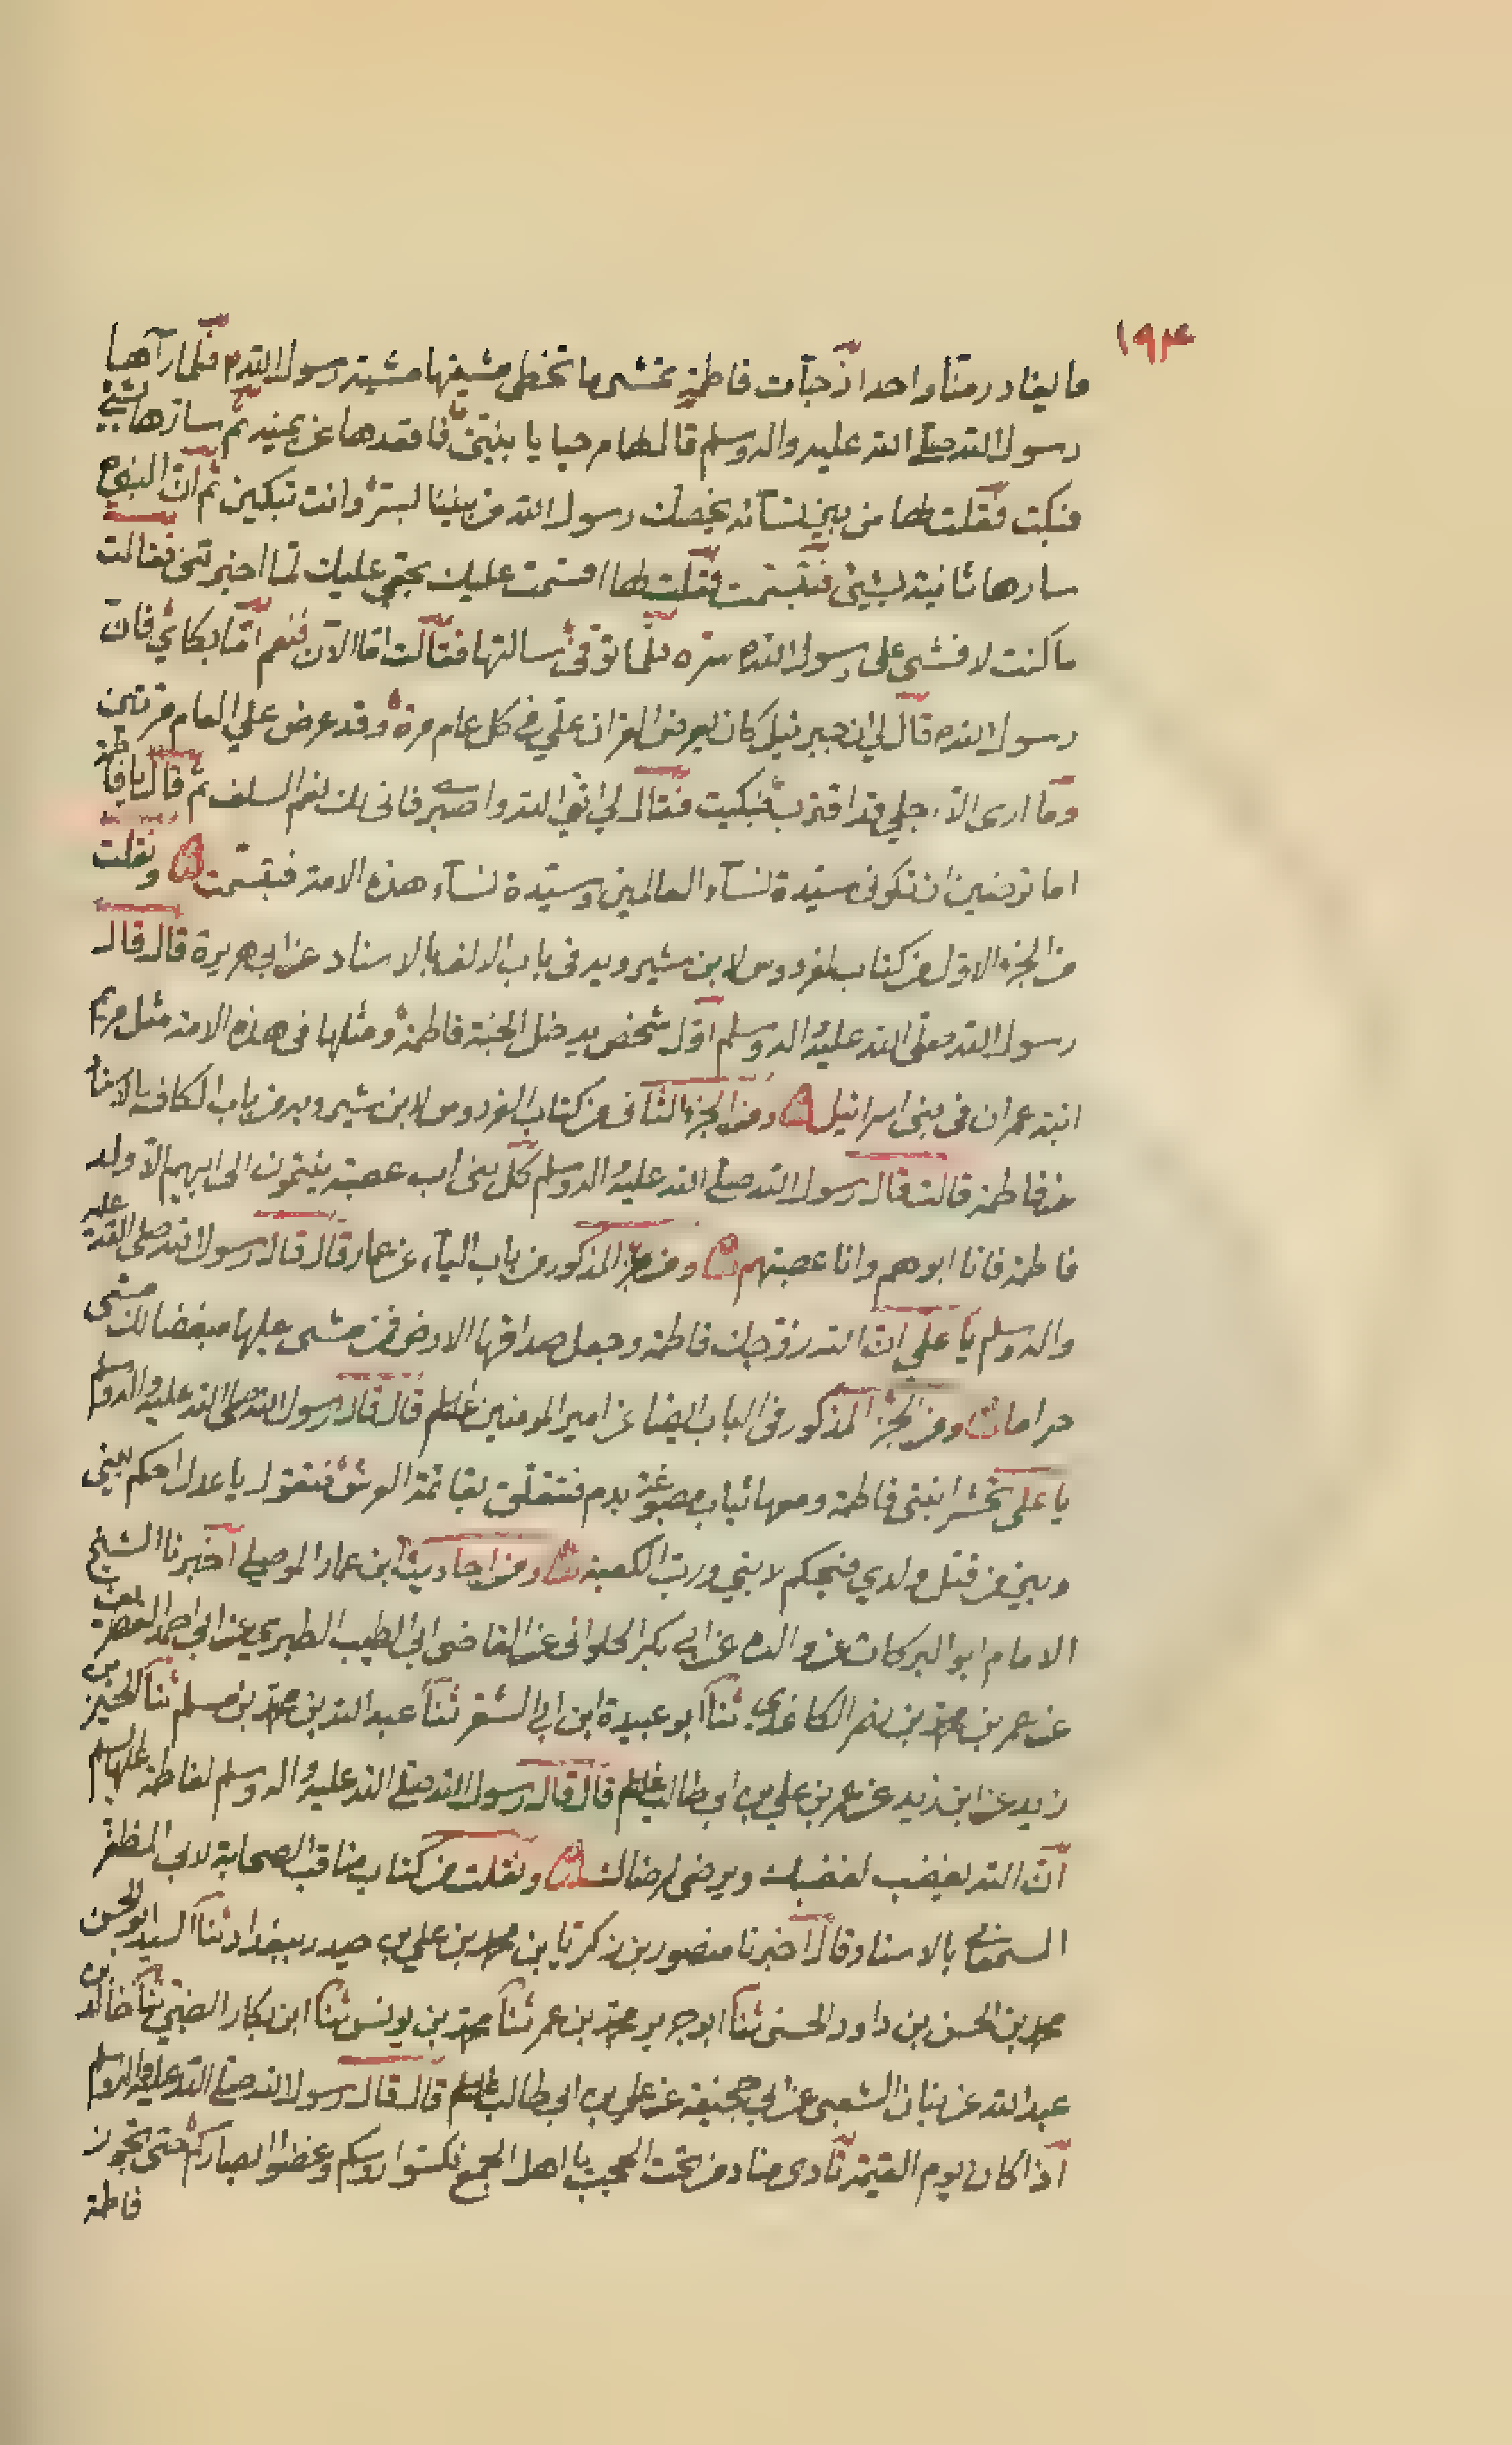 ١٩٣
ما يغادر منا واحدا اذ جآءت فاطمة تمشى ما تخطى مشيتها مشية رسول الله م فلما رآها
رسول الله صلى الله عليه واله وسلم قال لها مرحبا يا بنيتى فاقعدها عن يمينه ثم سارها بشئ
فبكت فقلت لها من بين نسآئه يخصك رسول الله من بيننا بسره وانت تبكين ثم ان النبى ص
سارها ثانية بشئ فتبسمت فقلت لها اقسمت عليك بحقى عليك لما اخبرتنى فقالت
ما كنت لافشى على رسول الله ص سره فلما توفى سالتها فقالت اما الآن فنعم اما بكائي فان
رسول الله ص قال لي ان جبرئيل كان يعرض القران علي في كل عام مرة وقد عرض علي العام مرتين
وما ارى الا اجلي قد اقترب فبكيت فقال لي اتقي الله واصبري فانى لك نعم السلف ثم قال يا فاطمة
اما ترضين ان تكونى سيدة نسآء العالمين وسيدة نسآء هذه الامة فتبسمت ونقلت
من الجزء الاول من كتاب الفردوس لابن شيرويه فى باب الالف بالاسناد عن ابى هريرة قال قال
رسول الله صلى الله عليه واله وسلم اول شخص يدخل الجنة فاطمة ومثلها فى هذه الامة مثل مريم
ابنة عمران فى بنى اسرائيل ومن الجزء الثانى من كتاب الفردوس لابن شيرويه من باب الكاف بالاسناد
عن فاطمة قالت قال رسول الله صلى الله عليه واله وسلم كل بنى اب عصبة ينتمون الى ابيهم الا ولد
فاطمة فانا ابوهم وانا عصبتهم ومن الجزء المذكور من باب اليآء عن عمار قال قال رسول الله صلى الله عليه
واله وسلم يا علي ان الله زوجك فاطمة وجعل صداقها الارض فمن مشى عليها مبغضا لك مشى
حراما ومن الجزء المذكور فى الباب ايضا عن امير المومنين عليه السلام قال قال رسول الله صلى الله عليه واله وسلم
يا على تحشر ابنتى فاطمة ومعها ثياب مصبوغة بدم فتتعلق بقائمة العرش فتقول يا عدل احكم بينى
وبين من قتل ولدي فيحكم لابنتي ورب الكعبة ومن احاديث ابن عمار الموصلي اخبرنا الشيخ
الامام ابو البركات عن والده عن ابى بكر الحلوانى عن القاضى ابى الطيب الطبري عن ابى احمد الغطريف
عن عمر بن محمد بن نصر الكاغذي ثنا ابو عبيدة ابن ابى السفر ثنا عبد الله بن محمد بن سلم ثنا الحسين بن
زيد عن ابن زيد عن عمر بن علي بن ابى طالب عليه السلام قال قال رسول الله صلى الله عليه واله وسلم لفاطمة عليها السلم
ان الله ليغضب لغضبك ويرضى لرضاك ونقلت من كتاب مناقب الصحابة لابى المظفر
السمعانى بالاسناد قال اخبرنا منصور بن زكريا بن محمد بن علي بن حيدر ببغداد ثنا السيد ابو الحسن
محمد بن الحسن بن داود الحسنى ثنا ابو جرير محمد بن عمر ثنا محمد بن يونس ثنا ابن بكار الضبي ثنا خالد بن
عبد الله عن بنان الشعبى عن ابى جحيفة عن على بن ابى طالب عليه السلام قال قال رسول الله صلى الله عليه واله وسلم
اذا كان يوم القيمة نادى مناد من تحت الحجب يا اهل الجمع نكسوا روسكم وغضوا ابصاركم حتى تجوز
فاطمة